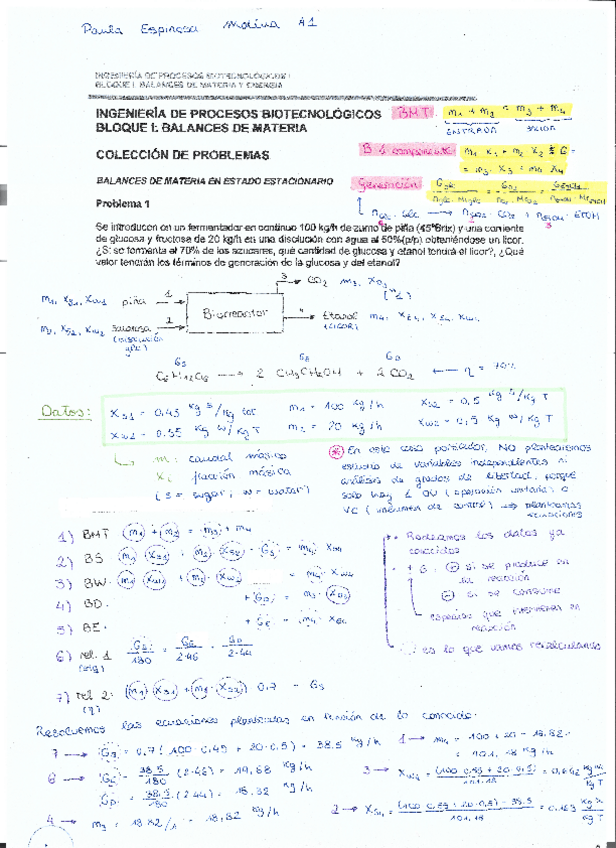 Paula Espinosa Molina A1
INGENIERÍA DE PROCESOS BIOTECNOLÓGICOS I
BLOQUE I. BALANCES DE MATERIA Y ENERGÍA
INGENIERÍA DE PROCESOS BIOTECNOLÓGICOS
BLOQUE I: BALANCES DE MATERIA
BMT m1 + m2 = m3 + m4
ENTRADA SALIDA
COLECCIÓN DE PROBLEMAS
B 1 componente
BALANCES DE MATERIA EN ESTADO ESTACIONARIO
Generación
Problema 1
Se introducen en un fermentador en continuo 100 kg/h de zumo de piña (45ºBrix) y una corriente
de glucosa y fructosa de 20 kg/h en una disolución con agua al 50%(p/p) obteniéndose un licor.
¿Si se fermenta el 70% de los azucares, qué cantidad de glucosa y etanol tendrá el licor?, ¿Qué
valor tendrán los términos de generación de la glucosa y del etanol?
3 CO2 m3, XD3
m1, XS1, XW1 piña 1
Biorreactor
4 Etanol m4, XE4, XS4, XW4
(LICOR)
m2, XS2, XW2 2
C6H12O6 → 2 CH3CH2OH + 2 CO2 ← η = 70%
Datos:
XS1 = 0,45 kg S/kg tot m1 = 100 kg/h XS2 = 0,5 kg S/kg T
XW1 = 0,55 kg W/kg T m2 = 20 kg/h XW2 = 0,5 kg W/kg T
m: caudal másico
X: fracción másica
(S = sugar; W = water)
En este caso particular, NO planteamos
estudio de variables independientes ni
análisis de grados de libertad, porque
solo hay 1 OU (operación unitaria) o
VC (volumen de control) → planteamos
ecuaciones
1) BMT m1 + m2 = m3 + m4
2) BS m1 XS1 + m2 XS2 - GS = m4 XS4
3) BW m1 XW1 + m2 XW2 = m4 XW4
4) BD + GD = m3 XD3
5) BE + GE = m4 XE4
6) rel. 1 GS/180 = GE/2·46 = GD/2·44
7) rel 2: (m1 XS1 + m2 XS2) 0,7 = GS
Rodeamos los datos ya
conocidos
± G: + si se produce en
la reacción
- si se consume
especies que intervienen en
reacción
es lo que vamos resolviendo
Resolvemos las ecuaciones planteadas en función de lo conocido:
7 → GS = 0,7 (100·0,45 + 20·0,5) = 38,5 kg/h
1 → m4 = 100 + 20 - 18,82 =
= 101,18 kg/h
6 → GE = 38,5/180 (2·46) = 19,68 kg/h
GD = 38,5/180 (2·44) = 18,82 kg/h
3 → XW4 = (100·0,55 + 20·0,5)/101,18 = 0,642 kg W/kg T
4 → m3 = 18,82/1 = 18,82 kg/h
2 → XS4 = (100·0,45 + 20·0,5) - 38,5/101,18 = 0,163